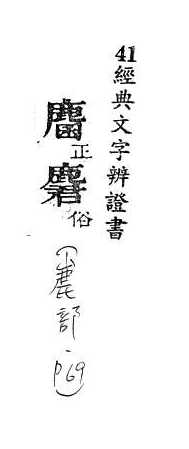 41經典文字辨證書
麕正麏俗(鹿部·p69)